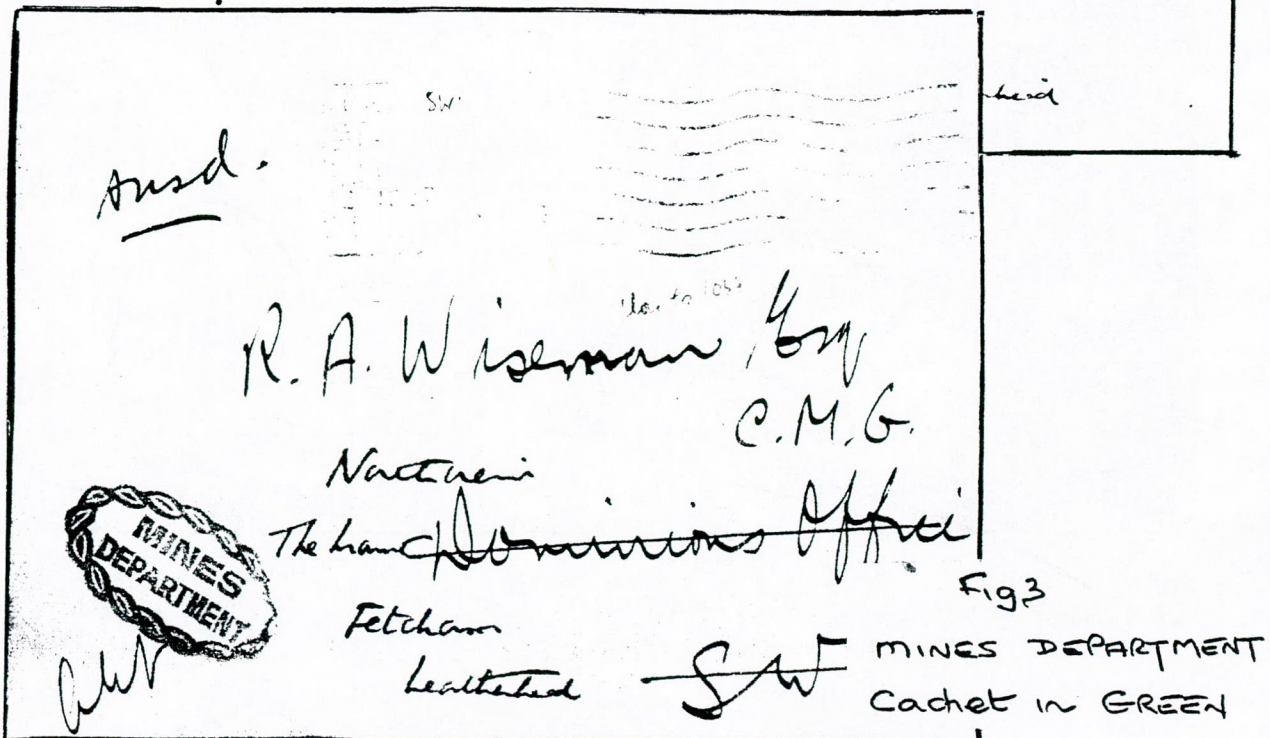 SW
head
Ansd.
R. A. Wiseman, Esq
C.M.G.
The Dominions Office
MINES
DEPARTMENT
Fetcham
Leatherhead SW
Fig 3
MINES DEPARTMENT
Cachet in GREEN